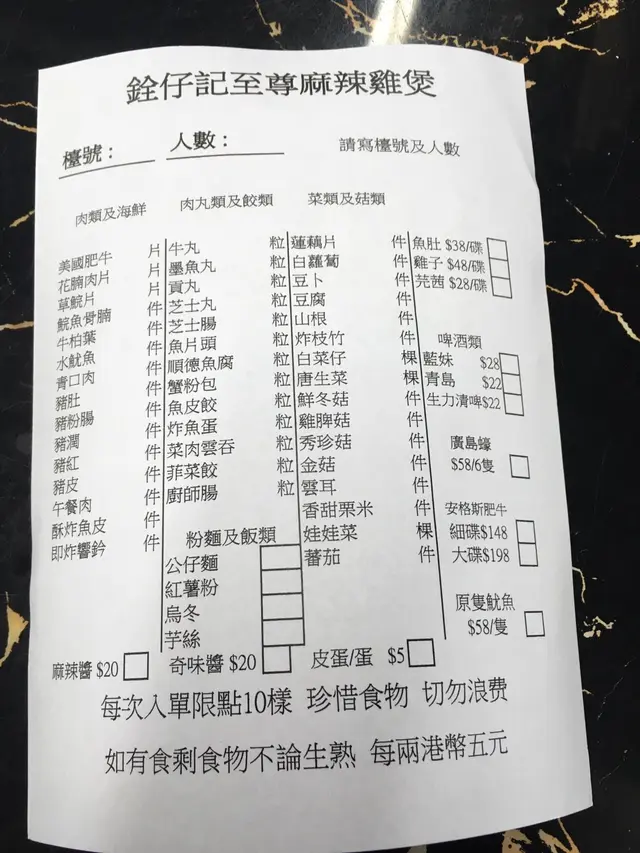 銓仔記至尊麻辣雞煲
檯號： 人數： 請寫檯號及人數
肉類及海鮮
美國肥牛 片
花腩肉片 片
草鯇片 片
鯇魚骨腩 件
牛柏葉 件
水魷魚 件
青口肉 件
豬肚 件
豬粉腸 件
豬潤 件
豬紅 件
豬皮 件
午餐肉 件
酥炸魚皮 件
即炸響鈴 件
肉丸類及餃類
牛丸 粒
墨魚丸 粒
貢丸 粒
芝士丸 粒
芝士腸 粒
魚片頭 粒
順德魚腐 粒
蟹粉包 粒
魚皮餃 粒
炸魚蛋 粒
菜肉雲吞 粒
菲菜餃 粒
廚師腸 粒
粉麵及飯類
公仔麵
紅薯粉
烏冬
芋絲
菜類及菇類
蓮藕片 件
白蘿蔔 件
豆卜 件
豆腐 件
山根 件
炸枝竹 件
白菜仔 棵
唐生菜 棵
鮮冬菇 件
雞脾菇 件
秀珍菇 件
金菇 件
雲耳 件
香甜粟米 件
娃娃菜 棵
蕃茄 件
魚肚 $38/碟
雞子 $48/碟
芫茜 $28/碟
啤酒類
藍妹 $28
青島 $22
生力清啤$22
廣島蠔
$58/6隻
安格斯肥牛
細碟$148
大碟$198
原隻魷魚
$58/隻
麻辣醬 $20 奇味醬 $20 皮蛋/蛋 $5
每次入單限點10樣 珍惜食物 切勿浪费
如有食剩食物不論生熟 每兩港幣五元